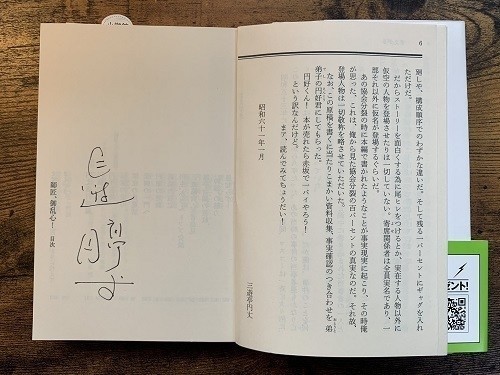 6
廻しや、構成順序でのわずかな違いだ。そして残る一パーセントにギャグを入れ
ただけだ。
だからストーリーを面白くする為に尾ヒレをつけるとか、実在する人物以外に
仮空の人物を登場させたりは一切していない。寄席関係者は全員実名であり、一
部それ以外に仮名が登場するぐらいだ。
あの協会分裂の時に本編で書かれたようなことが事実現実に起こり、その時俺
が思った、これは、俺から見た協会分裂の百パーセントの真実なのだ。それ故、
登場人物は一切敬称を略させていただいた。
なお、この原稿を書くに当たりこまかい資料収集、事実確認のつき合わせを弟
弟子の円好君にしてもらった。
円好くん! 本が売れたら赤坂で一パイやろう!
という訳なんだけど。
まァ、読んでみてちょうだい!
昭和六十一年一月
三遊亭円丈
三遊亭円丈
師匠、御乱心! 目次
ゼント!